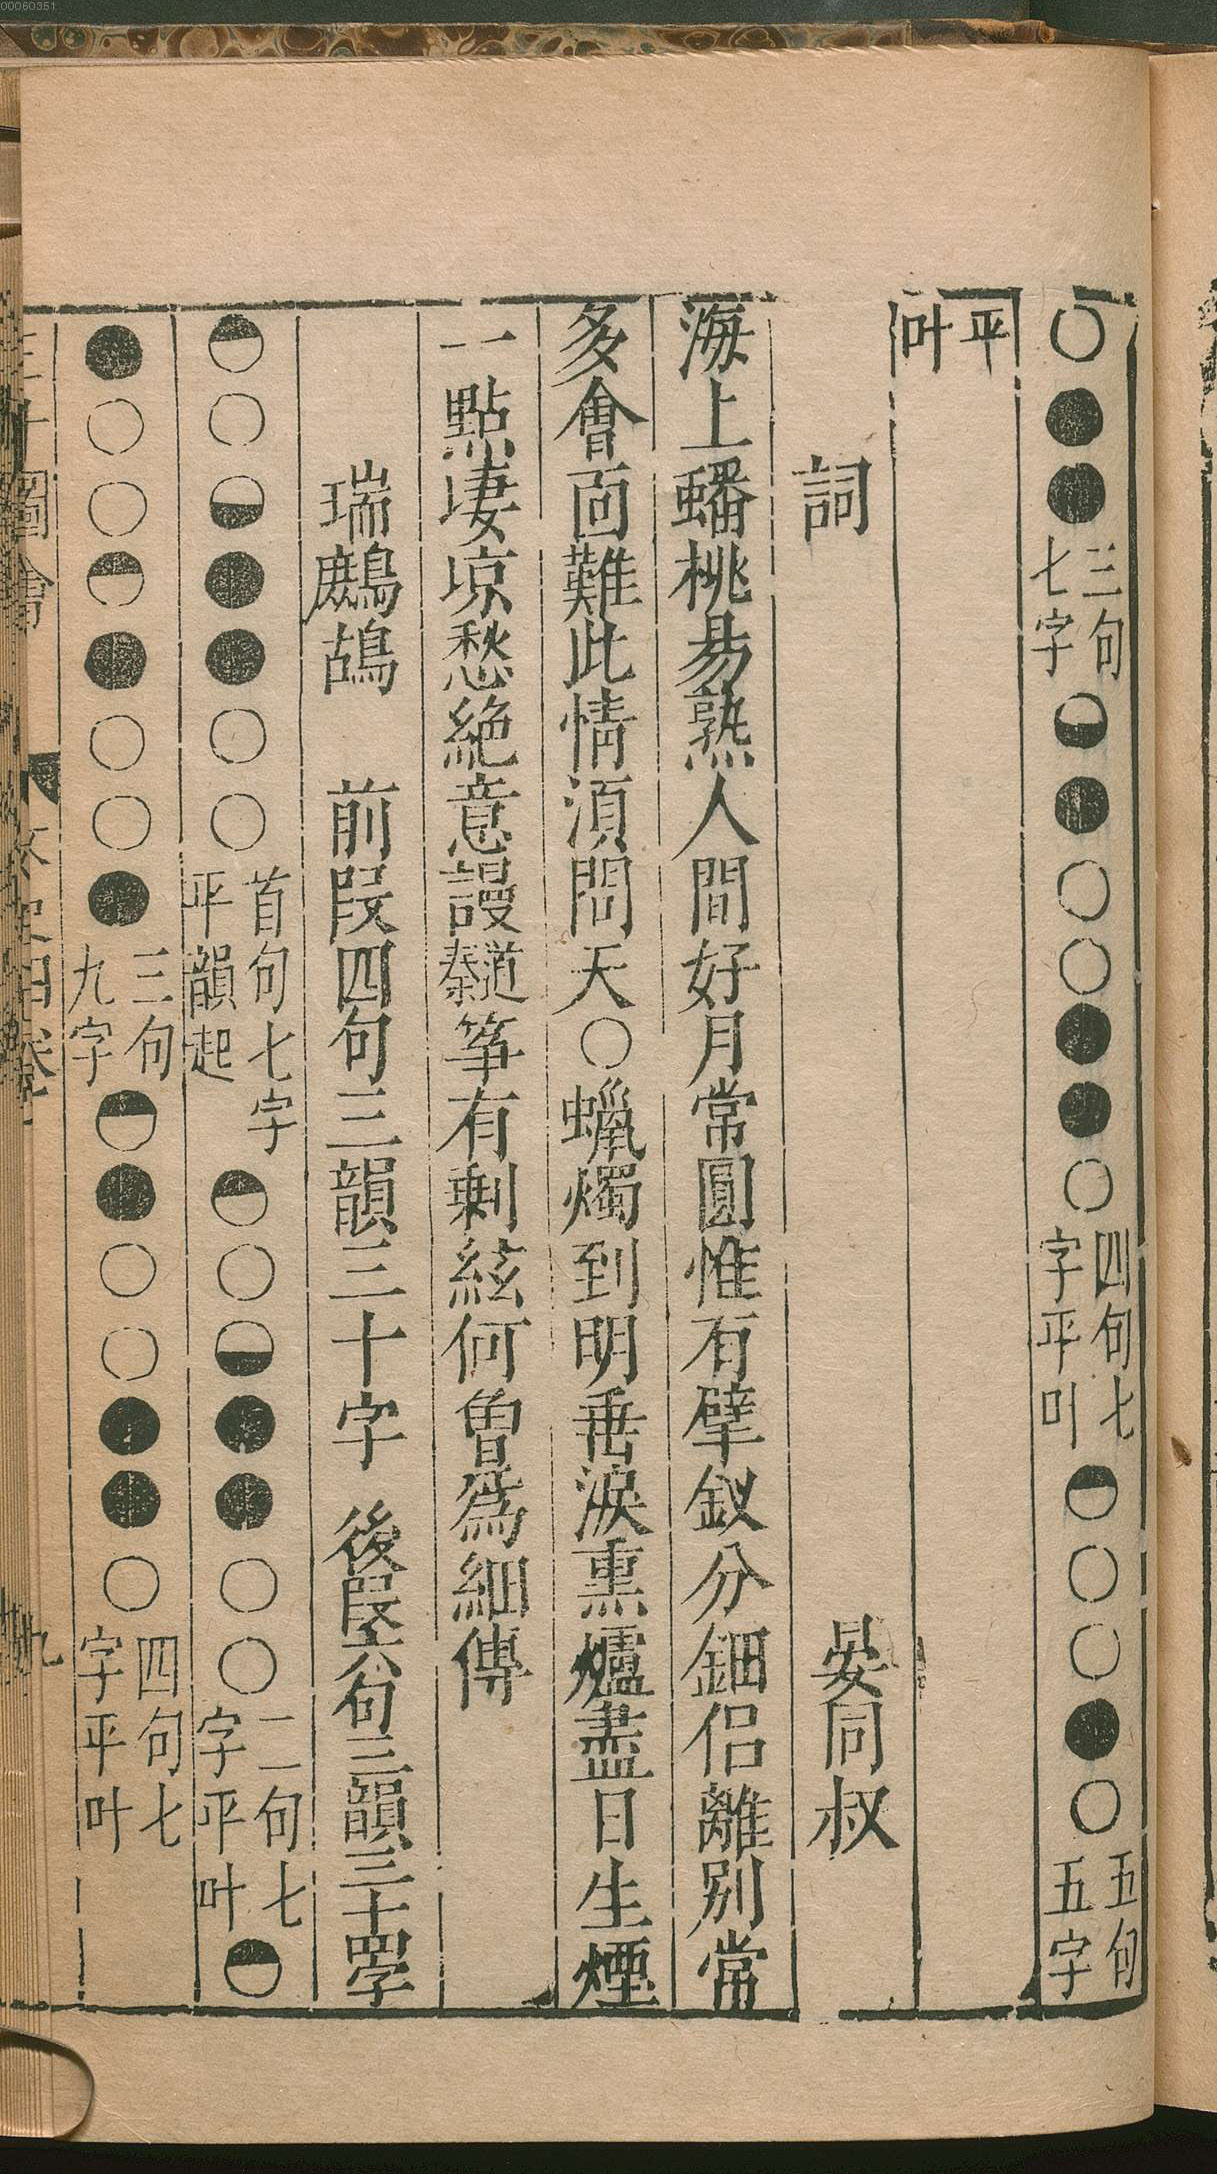 00060351
○●●三句七字◒●○○●●○四句七字平叶◓○○●○五句五字
平叶
詞 晏同叔
海上蟠桃易熟人間好月常圓惟有擘釵分鈿侣離別常
多會面難此情須問天○蠟燭到明垂淚熏爐盡日生煙
一點凄凉愁絶意謾道秦筝有剩絃何曾爲細傳
瑞鷓鴣 前段四句三韻三十字 後段六句三韻三十四字
◓○◒●●○○首句七字平韻起◓○◒●●○○二句七字平叶◓
●○○◓●○○●三句九字◓●○○●●○四句七字平叶
圖會 四卷 九